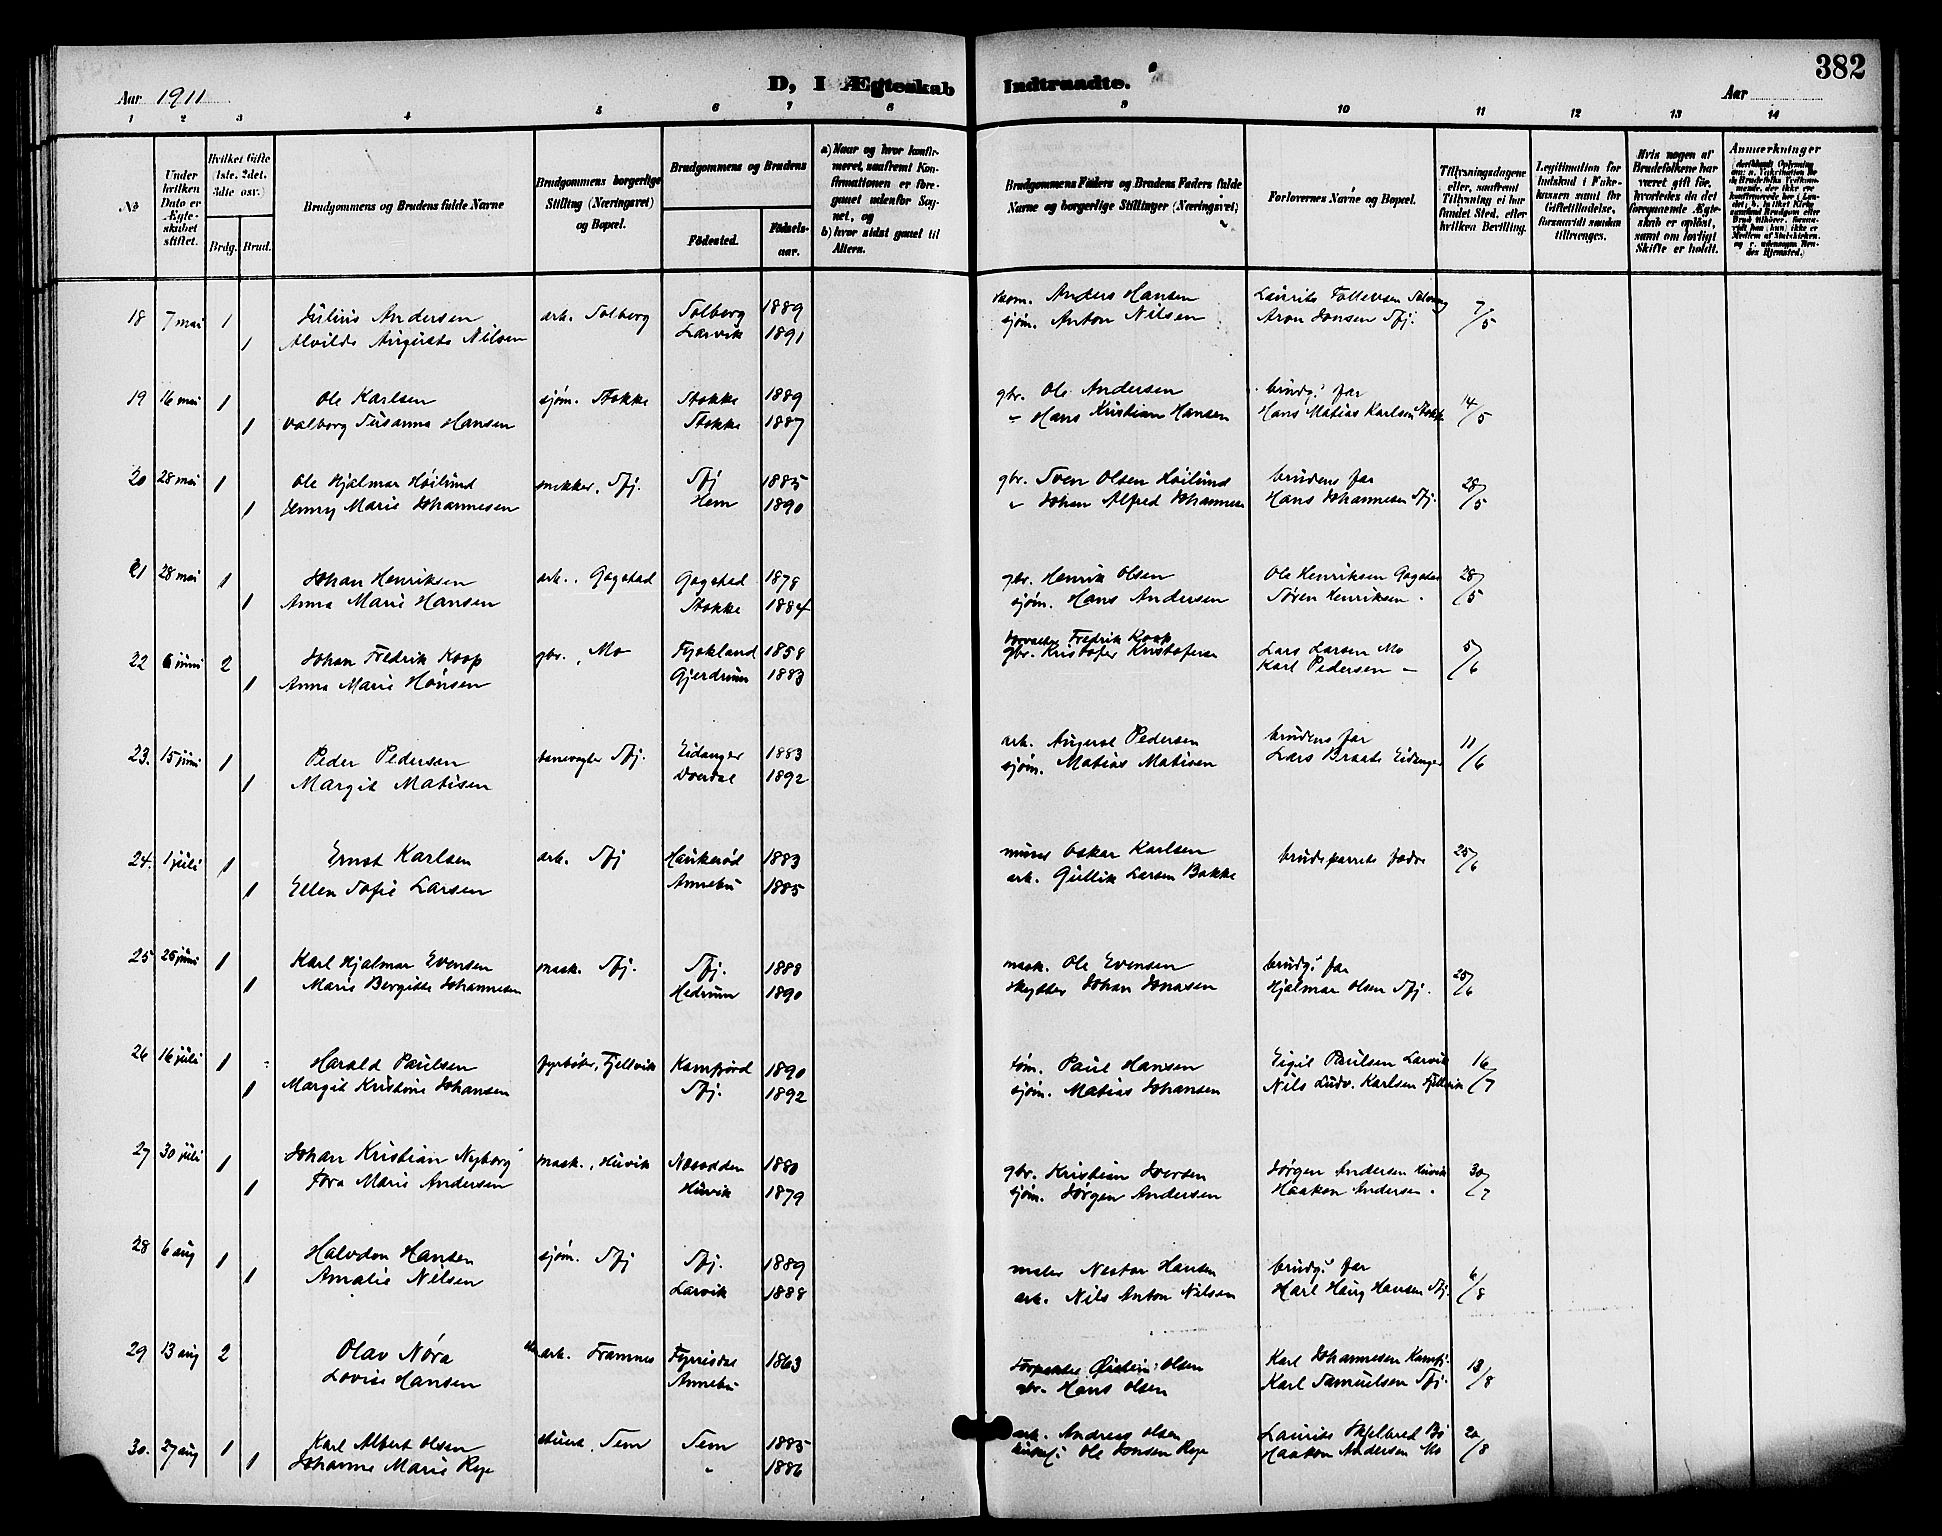 382
D, I Ægteskab Indtraadte.
Aar 1911
Aar
1 2 3 4 5 6 7 8 9 10 11 12 13 14
No
Under hvilken Dato er Ægteskabet stiftet.
Hvilket Gifte (1ste. 2det. 3die osv.)
Brdg. Brud.
Brudgommens og Brudens fulde Navne
Brudgommens borgerlige Stilling (Næringsvei) og Bopæl.
Brudgommens og Brudens
Fødested. Fødselsaar.
a) Naar og hvor konfirmeret, saafremt Konfirmationen er foregaaet udenfor Sognet, og
b) hvor sidst gaaet til Alters.
Brudgommens Faders og Brudens Faders fulde Navne og borgerlige Stillinger (Næringsvei)
Forlovernes Navne og Bopæl.
Tillysningsdagene eller, saafremt Tillysning ei har fundet Sted, efter hvilken Bevilling.
Legitimation for Indskud i Enkekassen samt for Giftetilladelse, forsaavidt saadan tiltrænges.
Hvis nogen af Brudefolkene har været gift før, hvorledes da det foregaaende Ægteskab er opløst, samt om lovligt Skifte er holdt.
Anmærkninger
18 7 mai 1 Julius Andersen arb. Solberg Solberg 1889 Anders Hansen Laurits Tollevsen Solberg 7/5
1 Alvilde Augusta Nilsen Larvik 1891 sjøm. Anton Nilsen Aron Jonsen Sfj.
19 16 mai 1 Ole Karlsen sjøm. Stokke Stokke 1889 gbr. Ole Andersen brudg's far 14/5
1 Valborg Susanna Hansen Stokke 1887 " Hans Kristian Hansen Hans Matias Karlsen Stokke
20 28 mai 1 Ole Hjalmar Høilund snekker, Sfj. Sfj 1885 gbr. Sven Olsen Høilund brudens far 28/5
1 Jenny Marie Johannesen Hem 1890 " Johan Alfred Johannesen Hans Johannesen Sfj.
21 28 mai 1 Johan Henriksen arb., Gogstad Gogstad 1878 gbr. Henrik Olsen Ole Henriksen Gogstad 28/5
1 Anna Marie Hansen Stokke 1884 sjøm. Hans Andersen Søren Henriksen "
22 6 juni 2 Johan Fredrik Koop gbr., Mo Tyskland 1858 Fredrik Koop Lars Larsen Mo 5/6
1 Anna Marie Hansen Gjerdrum 1883 gbr. Kristofer Kristofersen Karl Pedersen "
23. 15 juni 1 Peder Pedersen banevogter Sfj. Eidanger 1883 arb. August Pedersen brudens far 11/6
1 Margit Matisen 1892 sjøm. Matias Matisen Lars Braate Eidanger
24. 1 juli 1 Ernst Karlsen arb. Sfj Haukerød 1883 murer Oskar Karlsen brudeparrets fædre 25/6
1 Ellen Sofie Larsen Annebu 1885 arb. Gullik Larsen Bakke
25 25 juni 1 Karl Hjalmar Evensen mask. Sfj. Sfj. 1888 mask. Ole Evensen brudg's far 25/6
1 Marie Bergitte Johannesen Hedrum 1890 skytter Johan Jonasen Hjalmar Olsen Sfj.
26 16 juli 1 Harald Paulsen fyrbøter, Fjellvik Kamfjord 1890 tøm. Paul Hansen Eigil Paulsen Larvik 16/7
1 Margit Kristine Johansen Sfj. 1892 sjøm. Matias Johansen Nils Ludv. Karlsen Fjellvik
27 30 juli 1 Johan Kristian Nyborg mask., Husvik Næsodden 1880 gbr. Kristian Iversen Jørgen Andersen Husvik 30/7
1 Tora Marie Andersen Husvik 1879 sjøm. Jørgen Andersen Haakon Andersen "
28 6 aug 1 Halvdan Hansen sjøm. Sfj Sfj. 1889 maler Nestor Hansen brudg's far 6/8
1 Amalie Nilsen Larvik 1888 arb. Nils Anton Nilsen Karl Haug Hansen Sfj.
29 13 aug 2 Olav Nora arb. Framnes Fyrisdal 1863 Øistein Olsen Karl Johannesen Kamfj. 13/8
Lovise Hansen Annebu gbr. Hans Olsen Karl Samuelsen Sfj.
30. 27 aug 1 Karl Albert Olsen Sem Sem 1885 arb. Andreas Olsen Laurits Skjelbred Bø 20/8
1 Johanne Marie Rye " 1886 Ole Jonsen Rye Haakon Andersen Mo